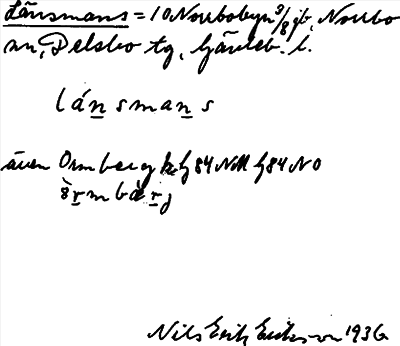 Länsmans = 10 Norrbobyn 3/8 jb, Norrbo
sn, Delsbo tg, Gävleb. l.
länsmans
även Ormberg kg 84 NM G84 NO
òrmbärj
Nils Erik Eriksson 1936